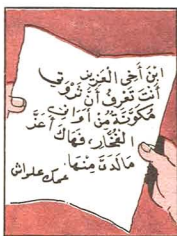 ابْنَ أَخِي الْعَزِيز
أَنْتَ تَعْرِفُ أَنَّ ثَرْوَتِي
مُكَوَّنَةٌ مِنْ أَوَانِي
الْفُخَّارِ، فَهَاكَ أَعَزَّ
مَا لَدَيَّ مِنْهَا.
عمك علواش